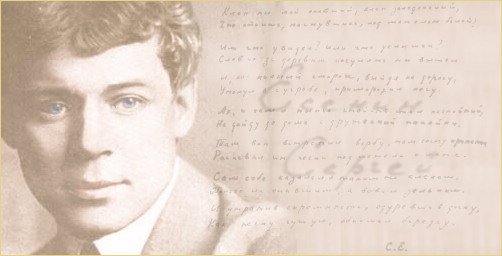 Клен ты мой опавший, клен заледенелый,
Что стоишь, нагнувшись, под метелью белой?
Или что увидел? Или что услышал?
Словно за деревню погулять ты вышел
И, как пьяный сторож, выйдя на дорогу,
Утонул в сугробе, приморозил ногу.
Ах, и сам я нынче чтой-то стал нестойкий,
Не дойду до дома с дружеской попойки.
Там вон встретил вербу, там сосну приметил,
Распевал им песни под метель о лете.
Сам себе казался я таким же кленом,
Только не опавшим, а вовсю зеленым.
И, утратив скромность, одуревши в доску,
Как жену чужую, обнимал березку.
С.Е.
Есенин
Сергей